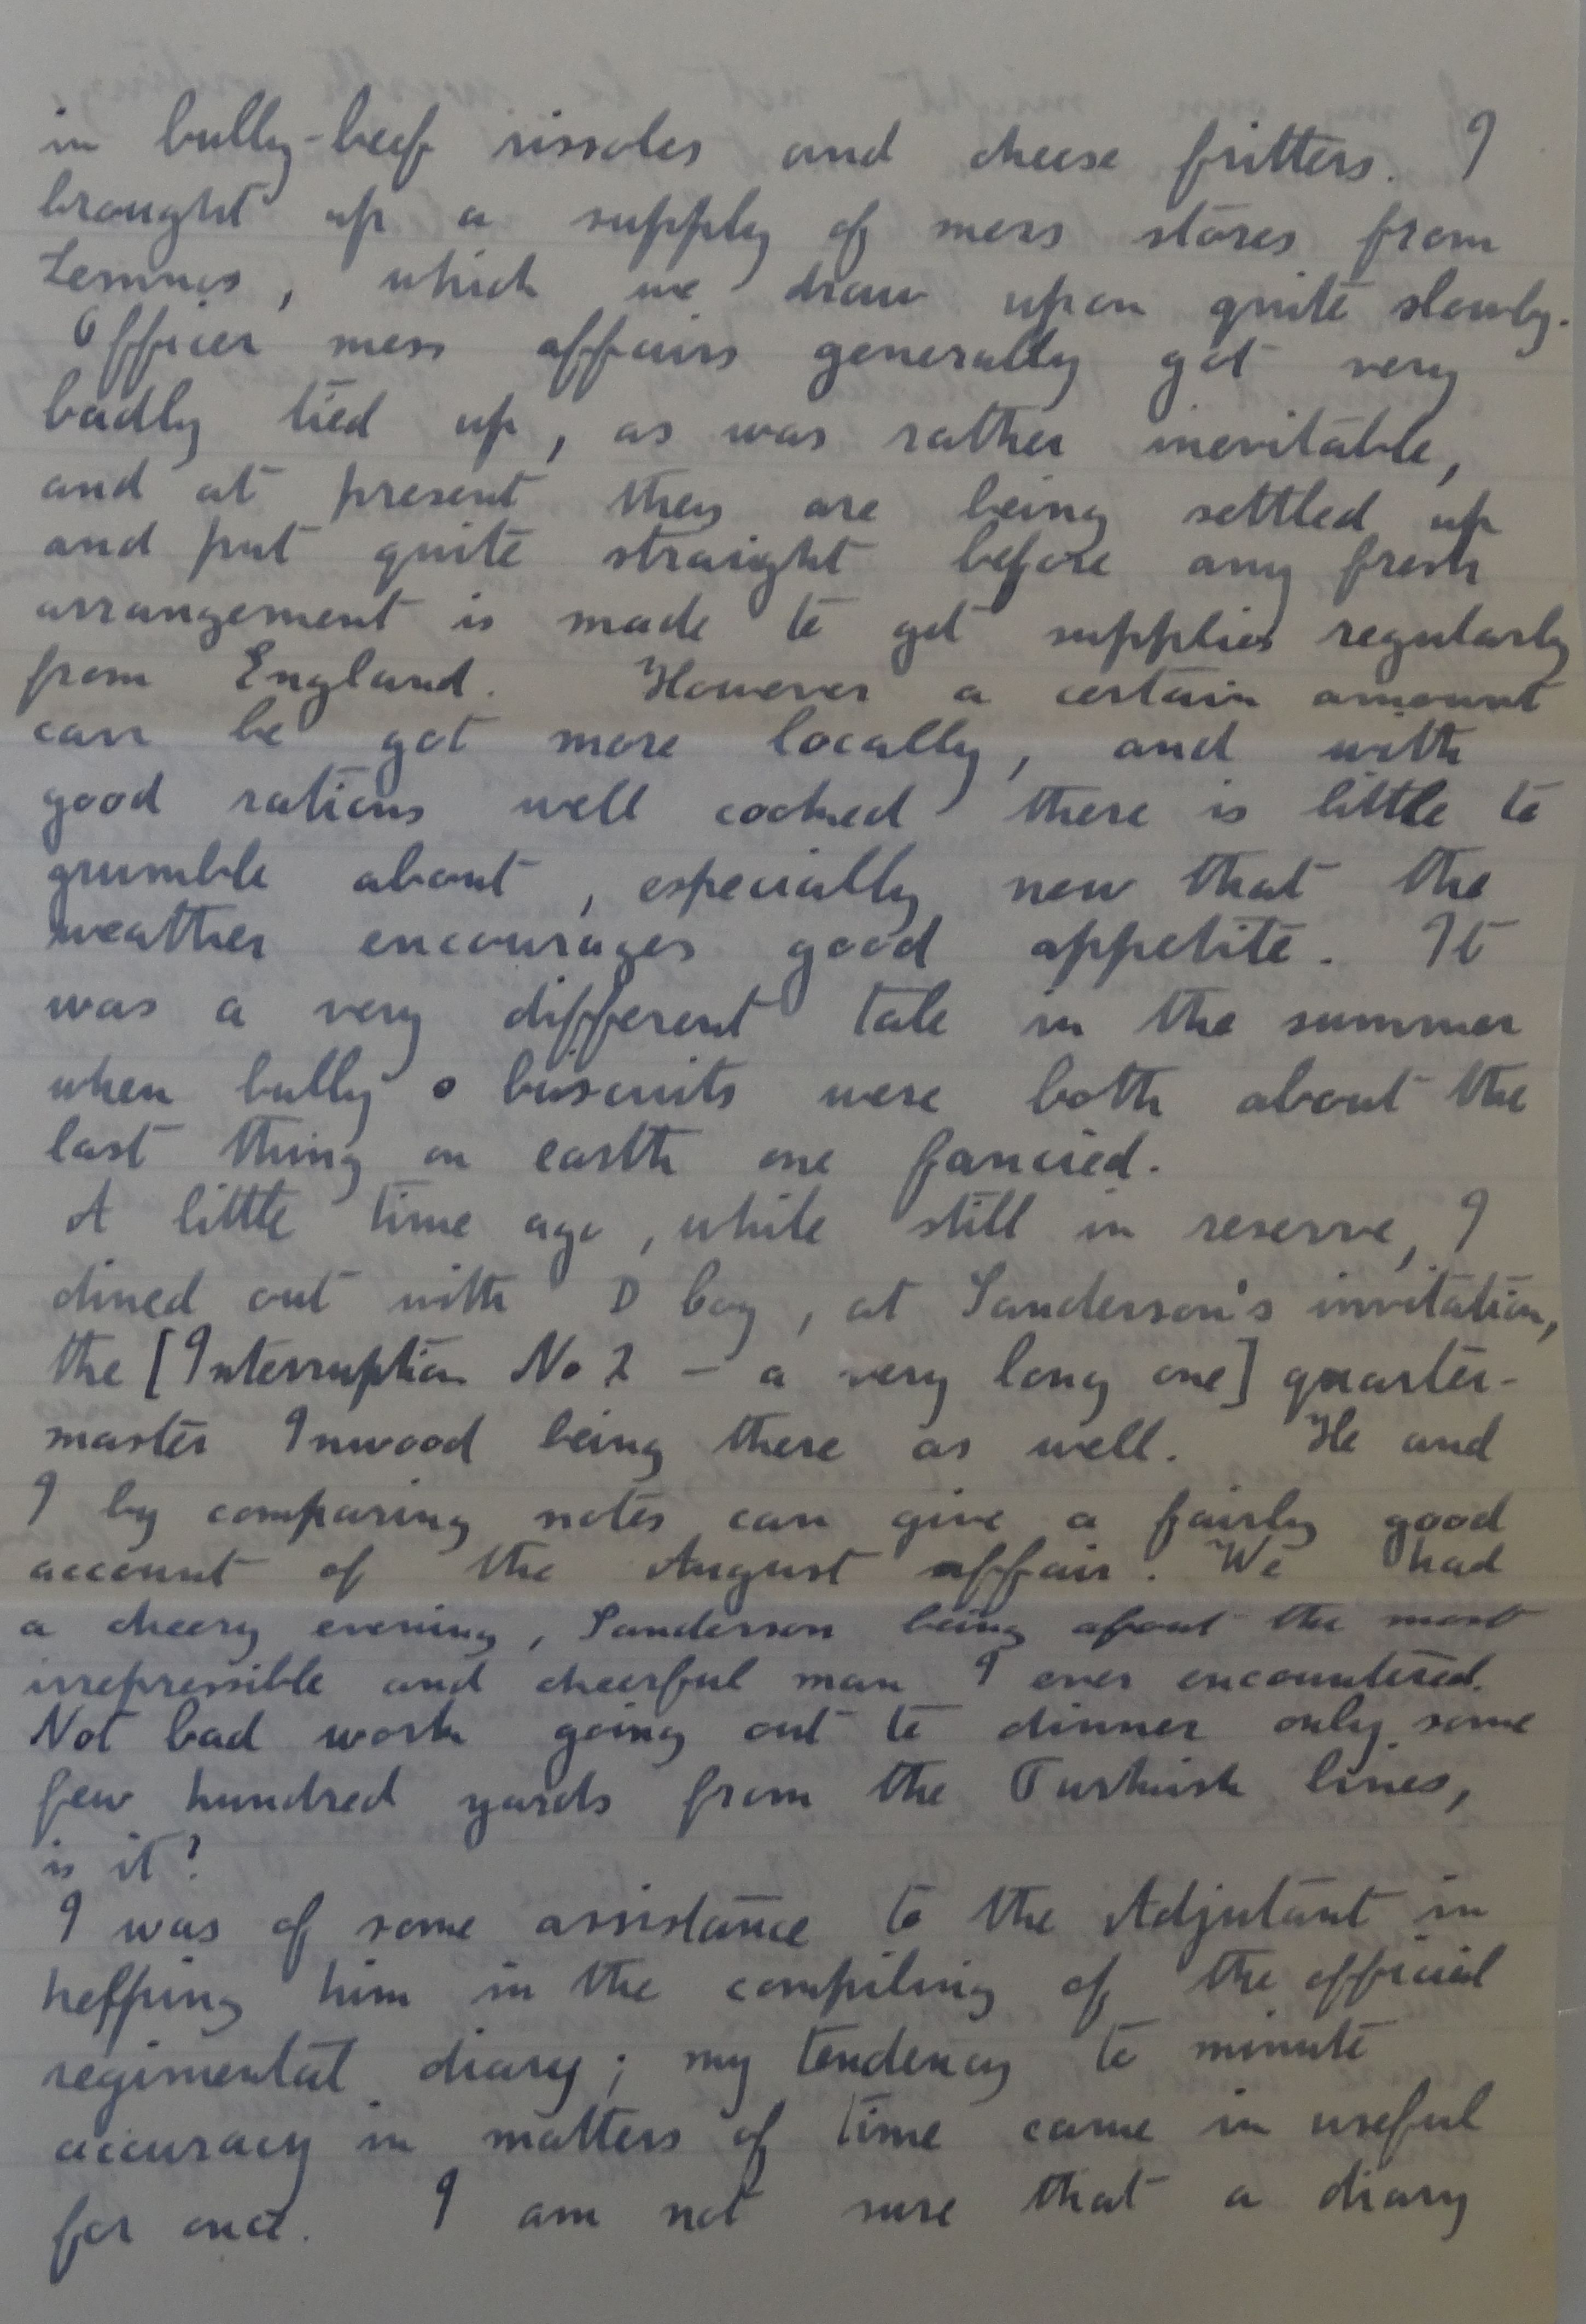 in bully-beef rissoles and cheese fritters. I
brought up a supply of mess stores from
Lemnos, which we draw upon quite slowly.
Officer mess affairs generally got very
badly tied up, as was rather inevitable,
and at present they are being settled up
and put quite straight before any fresh
arrangement is made to get supplies regularly
from England. However a certain amount
can be got more locally, and with
good rations well cooked there is little to
grumble about, especially now that the
weather encourages good appetite. It
was a very different tale in the summer
when bully & biscuits were both about the
last thing on earth one fancied.
A little time ago, while still in reserve, I
dined out with D Coy, at Sanderson's invitation,
the [Interruption No 2 - a very long one] quarter-
master Inwood being there as well. He and
I by comparing notes can give a fairly good
account of the August affair. We had
a cheery evening, Sanderson being about the most
irrepressible and cheerful man I ever encountered.
Not bad work going out to dinner only some
few hundred yards from the Turkish lines,
is it?
I was of some assistance to the Adjutant in
helping him in the compiling of the official
regimental diary; my tendency to minute
accuracy in matters of time came in useful
for once. I am not sure that a diary